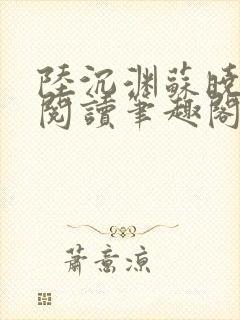 陸沉淵蘇曉
閱讀筆趣閣
蕭意涼